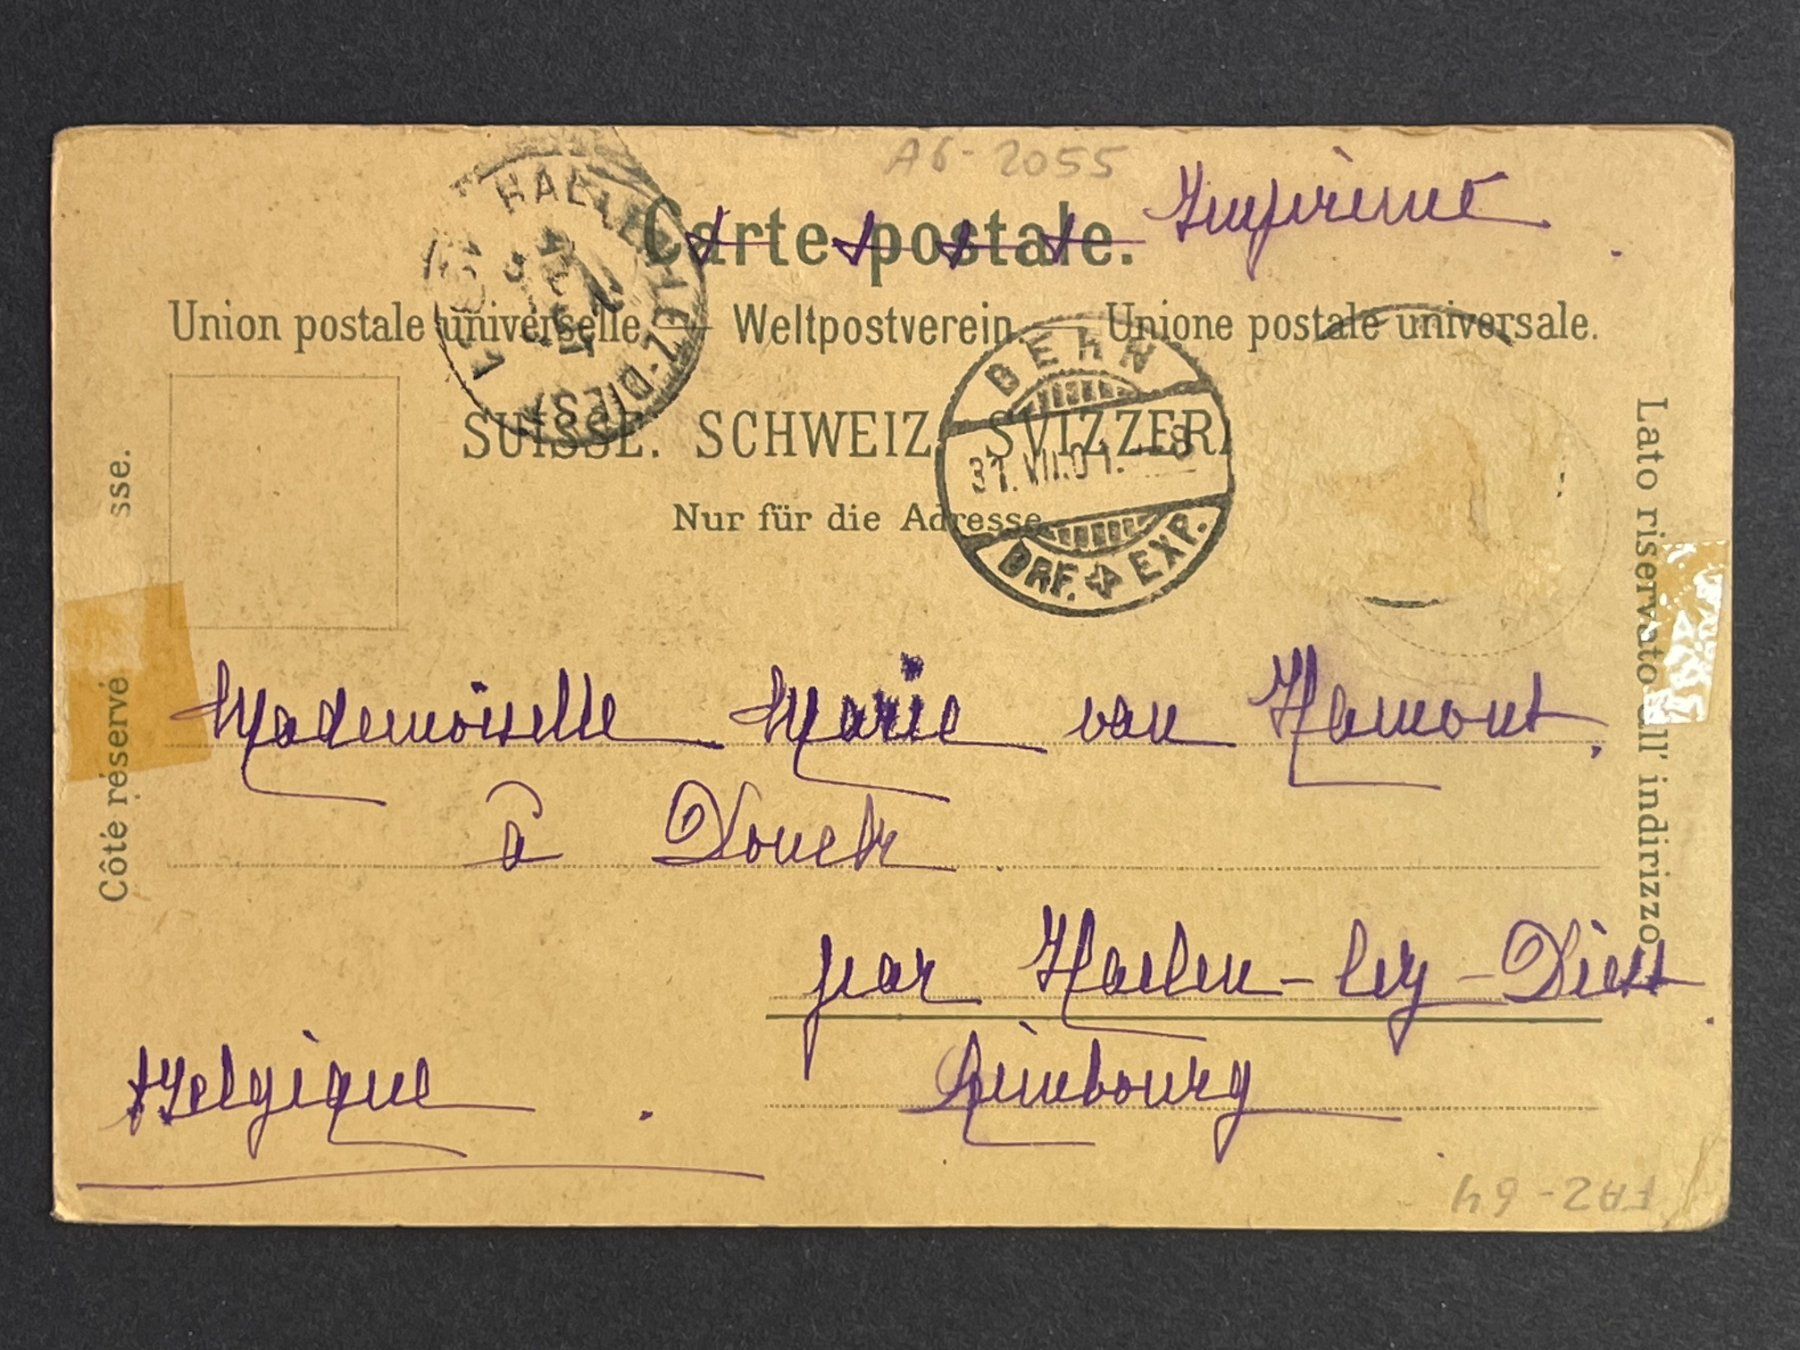 A6-2055
Carte postale. Imprimé
Union postale universelle. — Weltpostverein. — Unione postale universale.
SUISSE. SCHWEIZ. SVIZZERA
Nur für die Adresse
HAELEN-LEZ-DIEST
BERN
31.VII.01.—8
BRF. EXP.
Côté réservé
sse.
Lato riservato all' indirizzo
Mademoiselle Marie van Hamont.
à Donck
par Haelen-lez-Diest
Limbourg
Belgique.
FA2-64